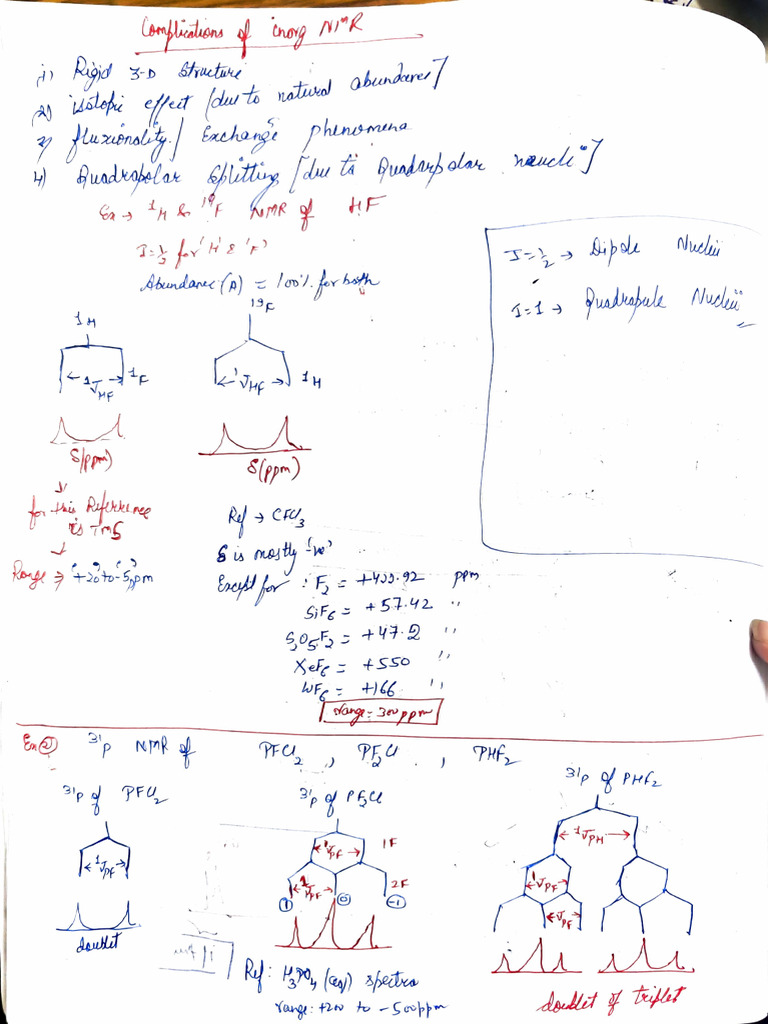 Complications of inorg NMR
1) Rigid 3-D Structure
2) isotopic effect [due to natural abundance]
3) fluxionality / Exchange phenomena
4) Quadrapolar Splitting [due to Quadrapolar nuclei]
Ex → ¹H & ¹⁹F NMR of HF
I=½ for 'H' & 'F'
Abundance (A) = 100% for both
I=½ → Dipole Nuclei
I=1 → Quadrapole Nuclei
¹H
¹⁹F
←¹J_HF→ ¹F
←¹J_HF→ ¹H
δ(ppm)
δ(ppm)
for this Reference is TMS
Range ⇒ +20 to -5ppm
Ref → CFCl₃
δ is mostly '-ve'
Except for : F₂ = +433.92 ppm
SiF₆ = +57.42 "
S₂O₅F₂ = +47.2 "
XeF₆ = +550
WF₆ = +166 "
range = 300 ppm
Ex② ³¹P NMR of PFCl₂, PF₂Cl, PHF₂
³¹P of PFCl₂
³¹P of PF₂Cl
³¹P of PHF₂
←¹J_PF→
doublet
←¹J_PF→ 1F
←¹J_PF→ 2F
① ⓪ -1
Ref: H₃PO₄ (aq) spectra
range: +200 to -500ppm
←¹J_PH→
←¹J_PF→
←J_PF→
doublet of triplet